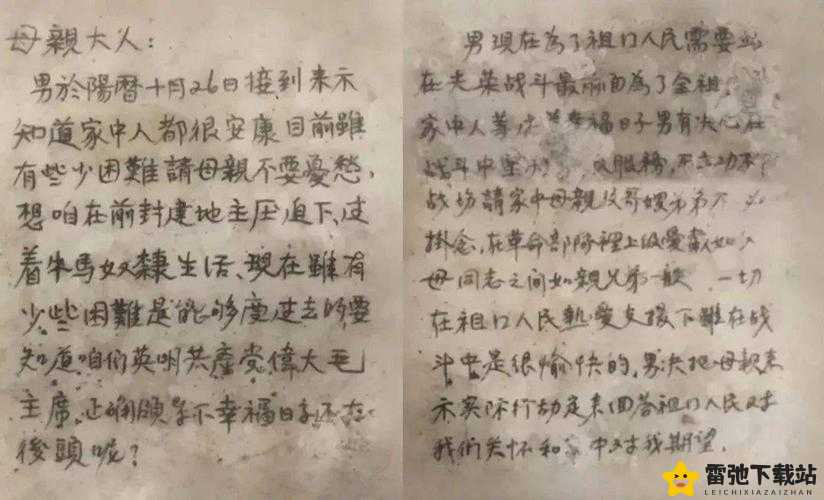 母親大人：
男於陽曆十月26日接到来示
知道家中人都很安康目前雖
有些少困難請母親不要憂愁，
想咱在前封建地主压迫下、过
着牛馬奴隸生活、现在雖有
少些困難是能够度过去的要
知道咱们英明共產党偉大毛
主席、正确領导不幸福日子还在
後頭呢？
男现在為了祖国人民需要站
在光荣战斗最前面為了全祖
家中人等 幸福日子男有决心在
战斗中 服務，不立功不
战场請家中母親及哥嫂弟弟不
掛念，在革命部隊裡上级愛戴如
母同志之间如親兄弟一般 一切
在祖国人民熱愛支援下雖在战
斗中是很愉快的，男决把母親来
示实际行动定来回答祖国人民对
我们关怀和家中对我期望．
雷弛下载站
LEICHIXIAZAIZHAN